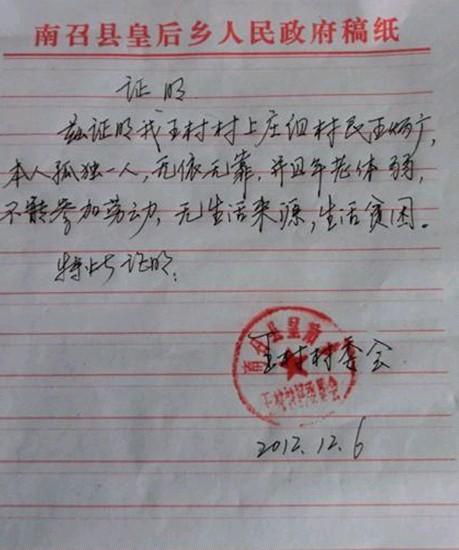 南召县皇后乡人民政府稿纸
证明
兹证明我王村村上庄组村民王炳广,
本人孤独一人,无依无靠,并且年老体弱,
不能参加劳动,无生活来源,生活贫困。
特此证明:
王村村委会
南召县皇后
王村村民委员会
2012.12.6